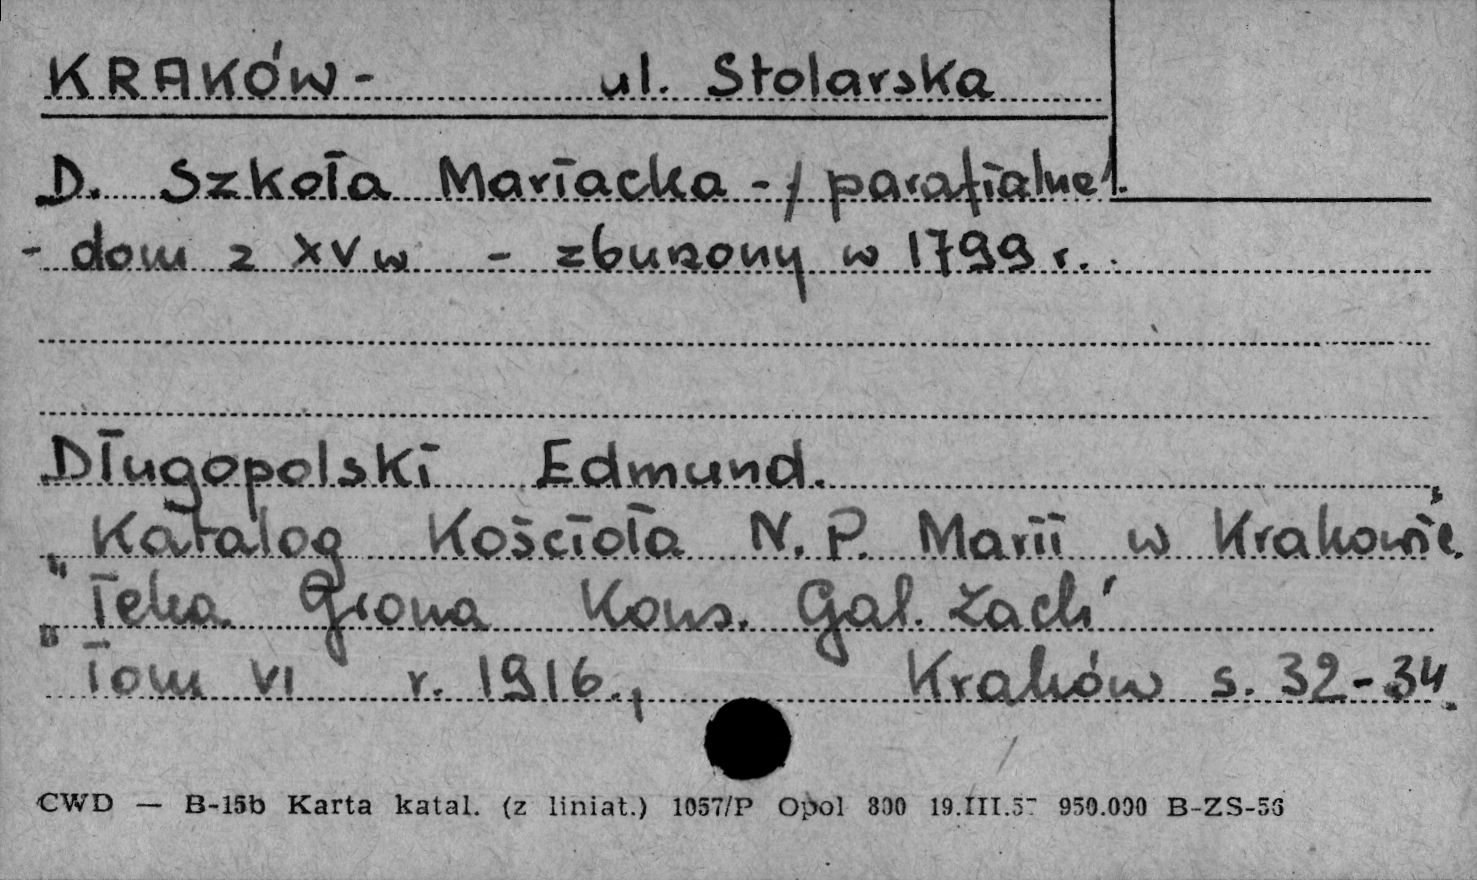 KRAKÓW - ul. Stolarska
D. Szkoła Mariacka - / parafialne /.
- dom z XV w - zburzony w 1799 r.
Długopolski Edmund.
Katalog Kościoła N. P. Marii w Krakowie.
"Teka Grona Kons. Gal. Zach"
"Tom VI r. 1916., Kraków s. 32-34.
CWD — B-15b Karta katal. (z liniat.) 1057/P Opol 800 19.III.57 950.000 B-ZS-56